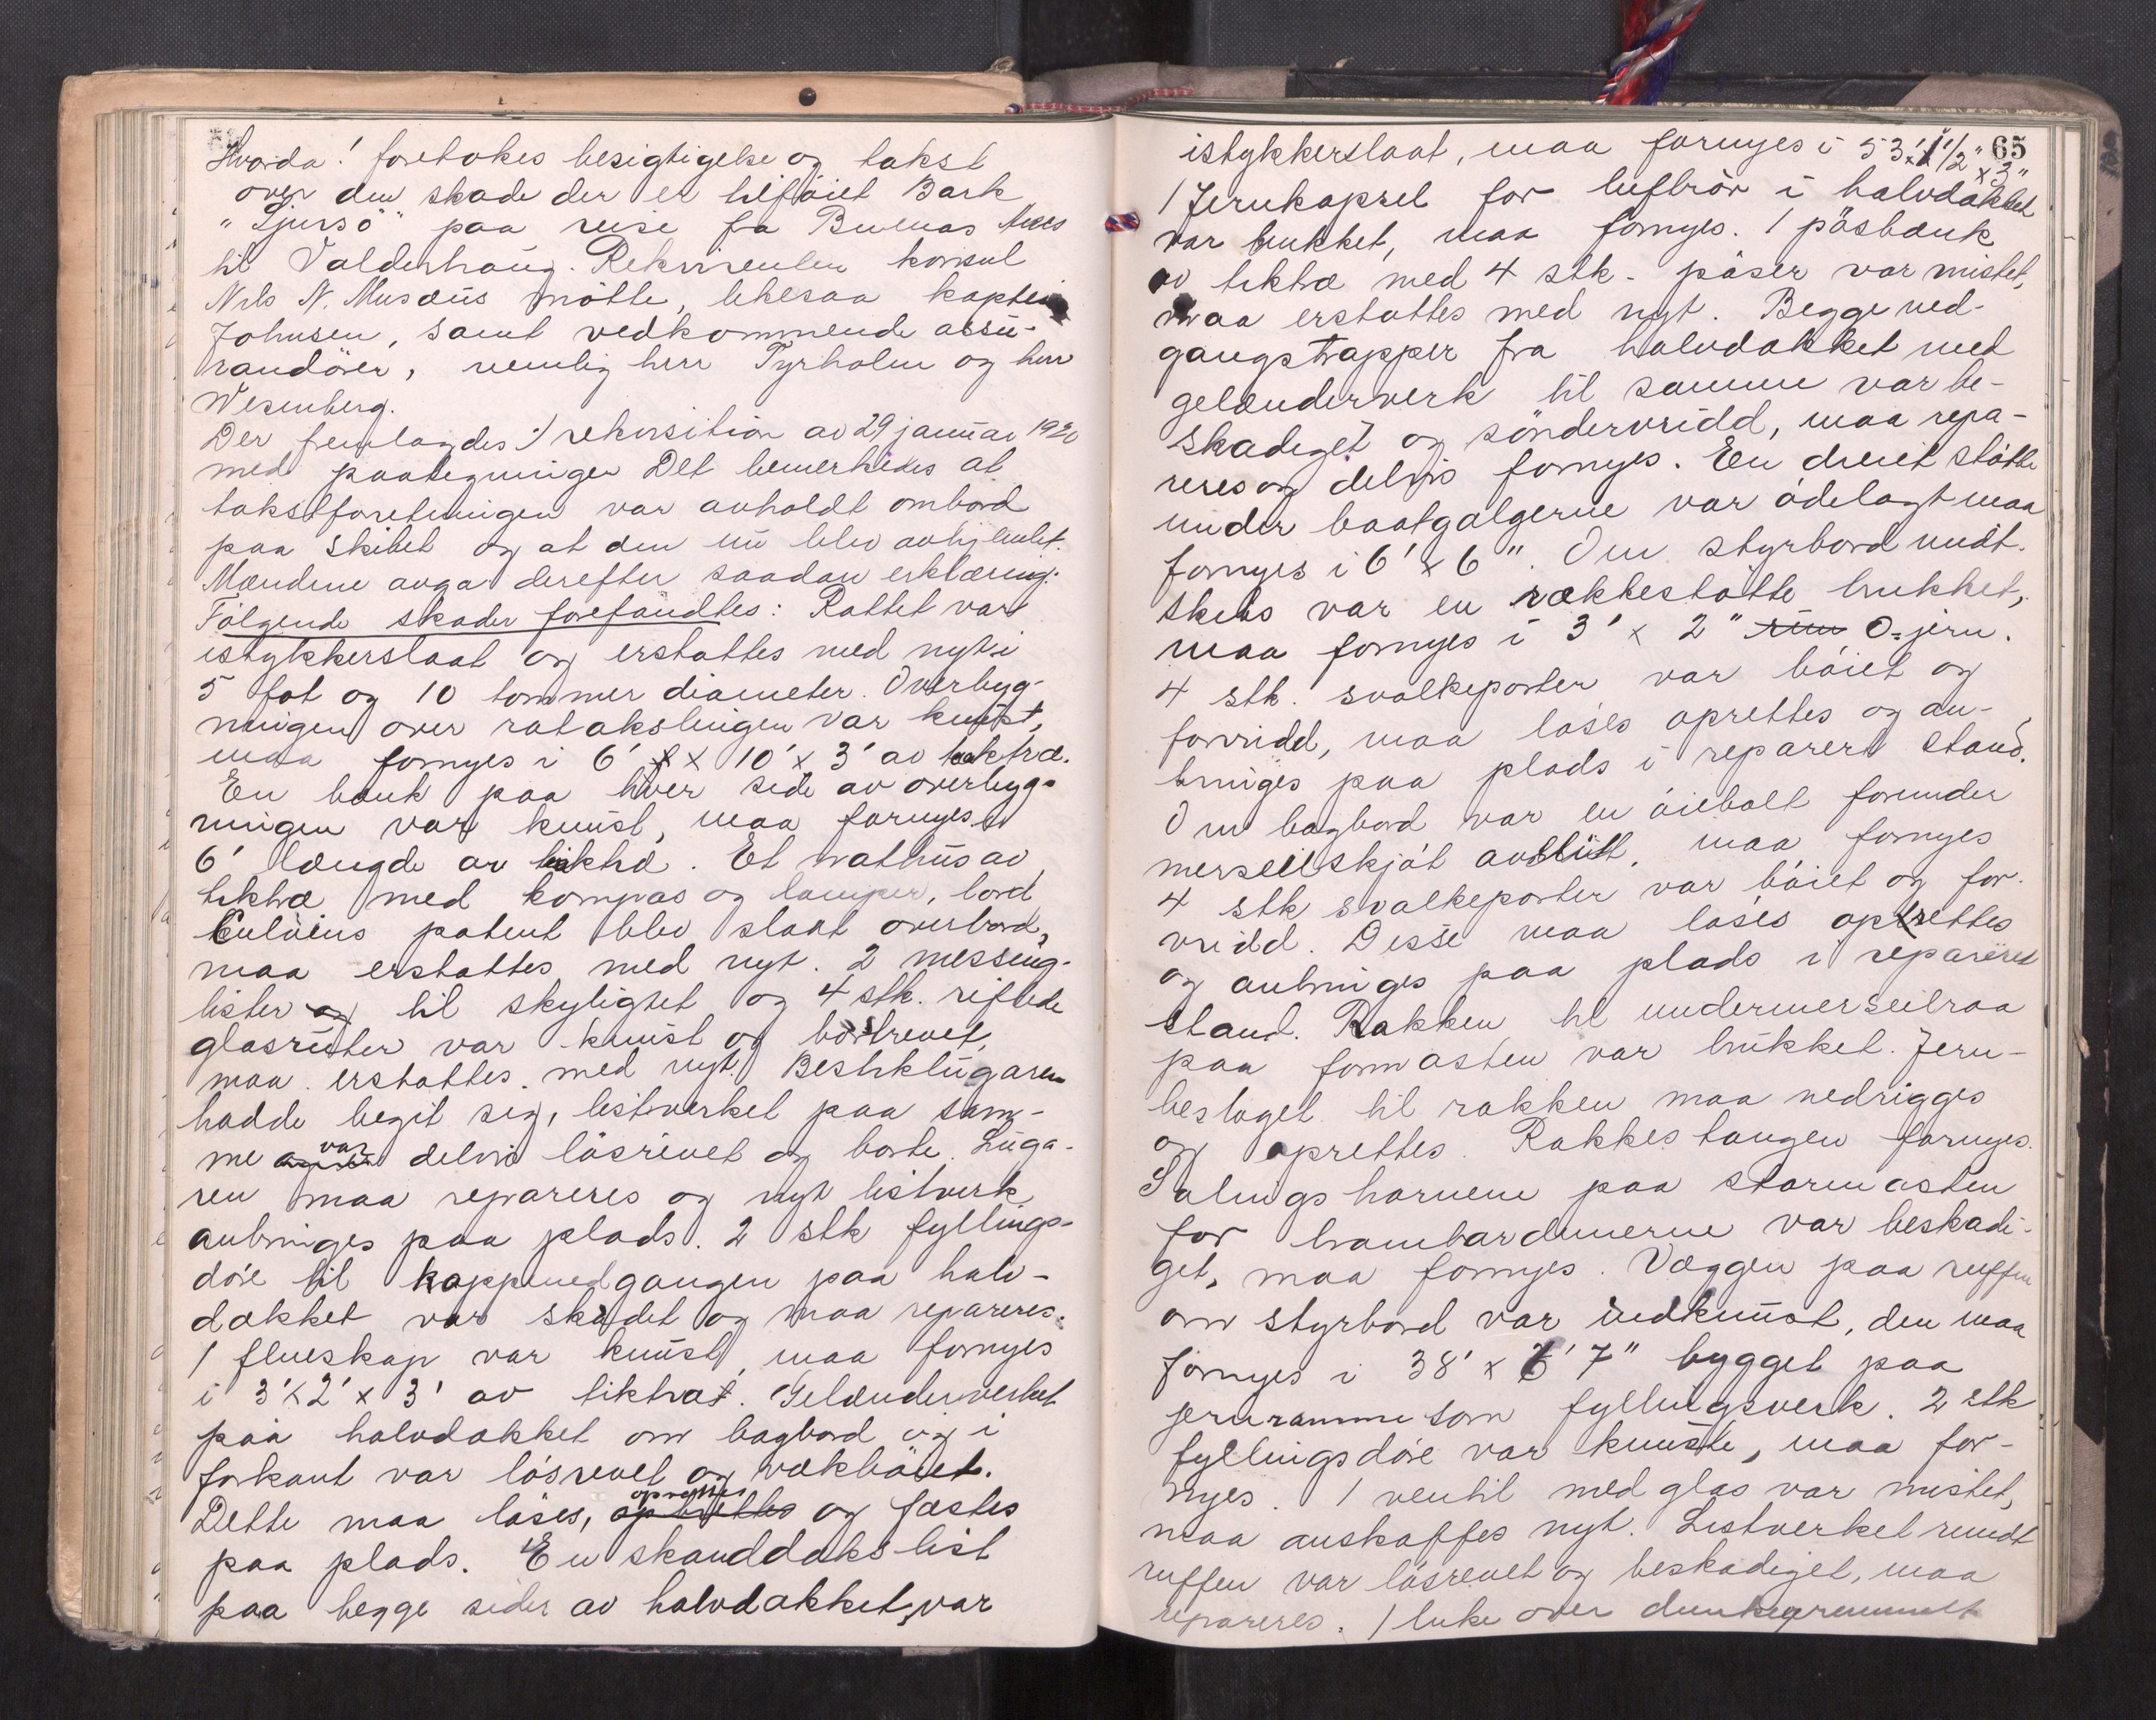 Hvorda! foretokes besigtigelse og takst
over den skade der er tilföiet Bark
"Sjursö" paa reise fra Buenas Aires
til Valderhaug. Rekvirenten konsul
Nils N. Musæus mötte, likesaa kaptein
Johnsen, samt vedkommende assu-
randörer, nemlig herr Tyrholm og herr
Wesenberg.
Der fremlagdes :/ rekvisition av 29 januar 1920
med paategninger Det bemerkedes at
takstforretningen var avholdt ombord
paa skibet og at den nu blev avhjemlet.
Mændene avga derefter saadan erklæring:
Fölgende skader forefandtes: Rattet var
istykkerslaat og erstattes med nyt i
5 fot og 10 tommer diameter. Overbyg-
ningen over ratakslingen var knust,
maa fornyes i 6' x 10' x 3' av tektræ.
En bænk paa hver side av overbyg-
ningen var knust, maa fornyes i
6' længde av tiktræ. Et nathus av
tiktræ med kompas og lamper, lord
Kelvins patent blev slaat overbord,
maa erstattes med nyt. 2 messing-
lister og til skylightet og 4 stk. riflede
glasruter var knust og bortrevet,
maa erstattes med nyt. Bestiklugaren
hadde begit sig, listverket paa sam-
me var delvis lösrivet og borte. Luga-
ren maa repareres og nyt listverk
anbringes paa plads. 2 stk fyllings-
döre til kappnedgangen paa halv-
dækket var skadet og maa repareres.
1 flueskap var knust, maa fornyes
i 3' x 2' x 3' av tiktræ. Gelænderverket
paa halvdækket om bagbord og i
forkant var lösrevet og vækböiet.
Dette maa löses, oprettes og fæstes
paa plads. En skanddæks list
paa begge sider av halvdækket, var
65
istykkerslaat, maa fornyes i 53' x 1 1/2" x 3"
1 Jernkapsel for luftrör i halvdækket
var brukket, maa fornyes. 1 pösbænk
av tiktræ med 4 stk. pöser var mistet,
maa erstattes med nyt. Begge ned-
gangstrapper fra halvdækket med
gelænderverk til samme var be-
skadiget og söndervridd, maa repa-
reres og delvis fornyes. En dreiet stötte
under baatgalgerne var ödelagt maa
fornyes i 6' x 6". Om styrbord midt-
skibs var en rækkestötte brukket,
maa fornyes i 3' x 2" run O-jern.
4 stk. svalkeporter var böiet og
forvridd, maa löses oprettes og an-
bringes paa plads i reparert stand.
Om bagbord var en öiebolt forunder
merseilskjöt avslitt, maa fornyes
4 stk svalkeporter var böiet og for-
vridd. Disse maa löses oprettes
og anbringes paa plads i repareret
stand. Rakken til undermerseilraa
paa formasten var brukket. Jern-
beslaget til rakken maa nedrigges
og oprettes. Rakkestangen fornyes.
Salingshornene paa stormasten
for brambardunerne var beskadi-
get, maa fornyes. Væggen paa ruffen
om styrbord var indknust, den maa
fornyes i 38' x 6' 7" bygget paa
jernramme som fyllingsverk. 2 stk
fyllingsdöre var knuste, maa for-
nyes. 1 ventil med glas var mistet,
maa anskaffes nyt. Listverket rundt
ruffen var lösrevet og beskadiget, maa
repareres. 1 luke over